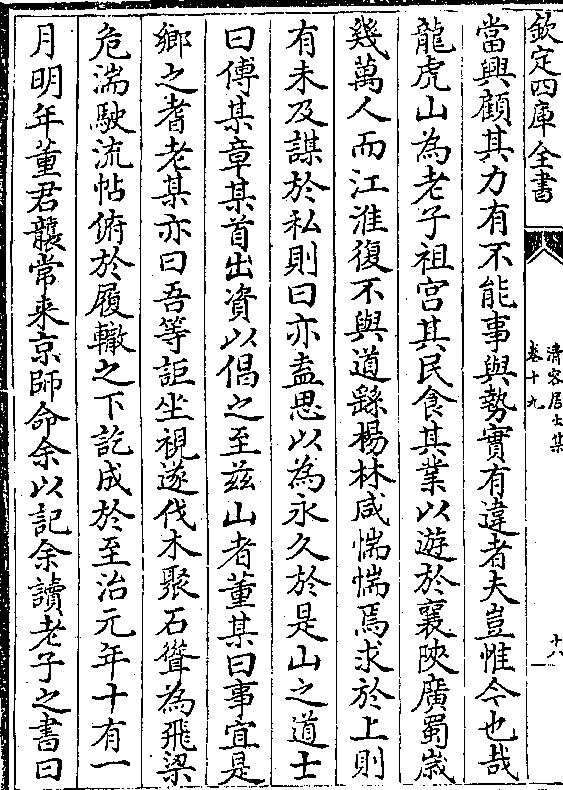 欽定四庫全書
清容居士集
卷十九
十六
當興顧其力有不能事與勢實有違者夫豈惟今也哉
龍虎山為老子祖宫其民食其業以遊於襄陜廣蜀嵗
幾萬人而江淮復不與道繇楊林咸惴惴焉求於上則
有未及謀於私則曰亦盍思以為永久於是山之道士
曰傅某章某首出資以倡之至兹山者董某曰事宜是
鄉之耆老某亦曰吾等詎坐視遂伐木聚石聳為飛梁
危湍駛流帖俯於履轍之下訖成於至治元年十有一
月明年董君襲常来京師命余以記余讀老子之書曰